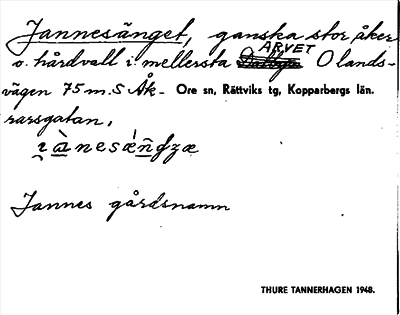 Jannesänget, ganska stor åker
o. hårdvall i mellersta ARVET O lands-
vägen 75 m. S Åk-
Ore sn, Rättviks tg, Kopparbergs län.
rarsgatan.
Jannes gårdsnamn
THURE TANNERHAGEN 1948.